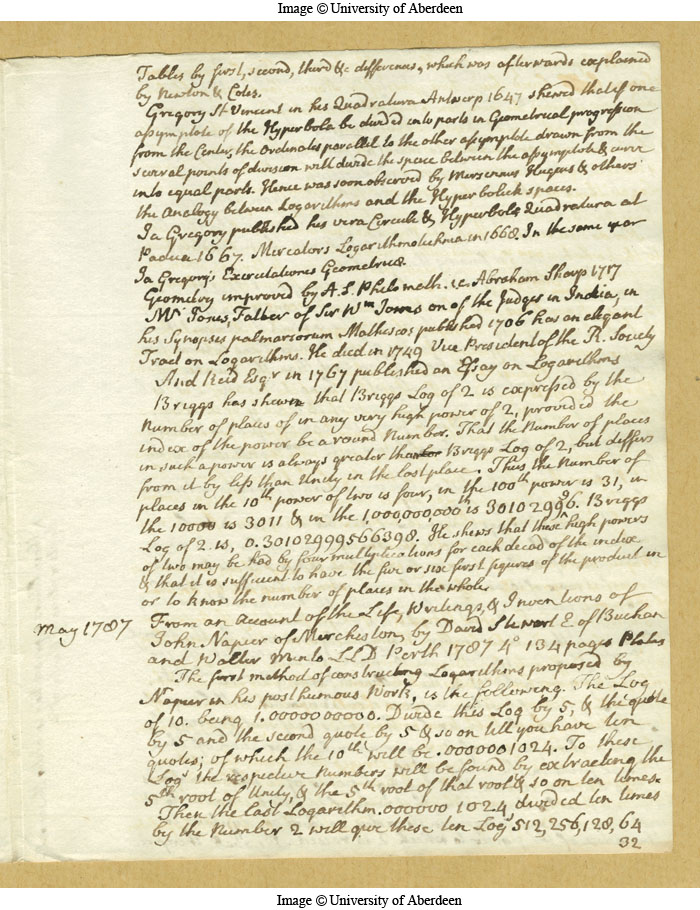 Image © University of Aberdeen
Tables by first, second, third &c differences, which was afterwards explained
by Newton & Cotes.
Gregory St Vincent in his Quadratura Antwerp 1647 shewed that if one
assymptote of the Hyperbola be divided into parts in Geometrical progression
from the Center, the Ordinates parallel to the other assymptote drawn from the
several points of division will divide the space between the assymptote & curve
into equal parts. Hence was soon observed by Mersennus Hugens & others
the Analogy between Logarithms and the Hyperbolick spaces.
Ja Gregory published his vera Circuli & Hyperbolæ Quadratura at
Padua 1667. Mercators Logarithmotechnia in 1668. In the same year
Ja Gregory's Exercitationes Geometricæ.
Geometry improved by A.S. Philomath. i.e. Abraham Sharp 1717
Mr Jones, Father of Sir Wm Jones on of the Judges in India, in
his Synopsis palmariorum Matheseos published 1706 has an elegant
Tract on Logarithms. He died in 1749 Vice President of the R. Society
And Reid Esqr in 1767 published an Essay on Logarithms
Briggs has shewn that Briggs Log of 2 is expressed by the
Number of places of in any very high power of 2, provided the
index of the power be a round Number. That the Number of places
in such a power is always greater than Briggs Log of 2, but differs
from it by less than Unity in the last place. Thus the Number of
places in the 10th power of two is four, in the 100th power is 31, in
the 10000 is 3011 & in the 1,000,000,000th is 301029996. Briggs
Log of 2 is, 0.30102999566398. He shews that these high powers
of two may be had by four multiplications for each decad of the index
& that it is sufficient to have the five or six first figures of the product in
or to know the number of places in the whole.
May 1787
From an Account of the Life, Writings, & Inventions of
John Napier of Merchiston, by David Stewart E of Buchan
and Walter Minto LLD Perth 1787 4o 134 pages Plates
The first method of constructing Logarithms proposed by
Napier in his posthumous Work, is the following. The Log
of 10. being 1.0000000000. Divide this Log by 5, & the quote
by 5 and the second quote by 5 & so on till you have ten
quotes; of which the 10th will be .000001024. To these
Logs the respective Numbers will be found by extracting the
5th root of Unity, & the 5th root of that root & so on ten times.
Then the last Logarithm .000000 1024 divided ten times
by the Number 2 will give these ten Logs 512, 256, 128, 64
32
Image © University of Aberdeen